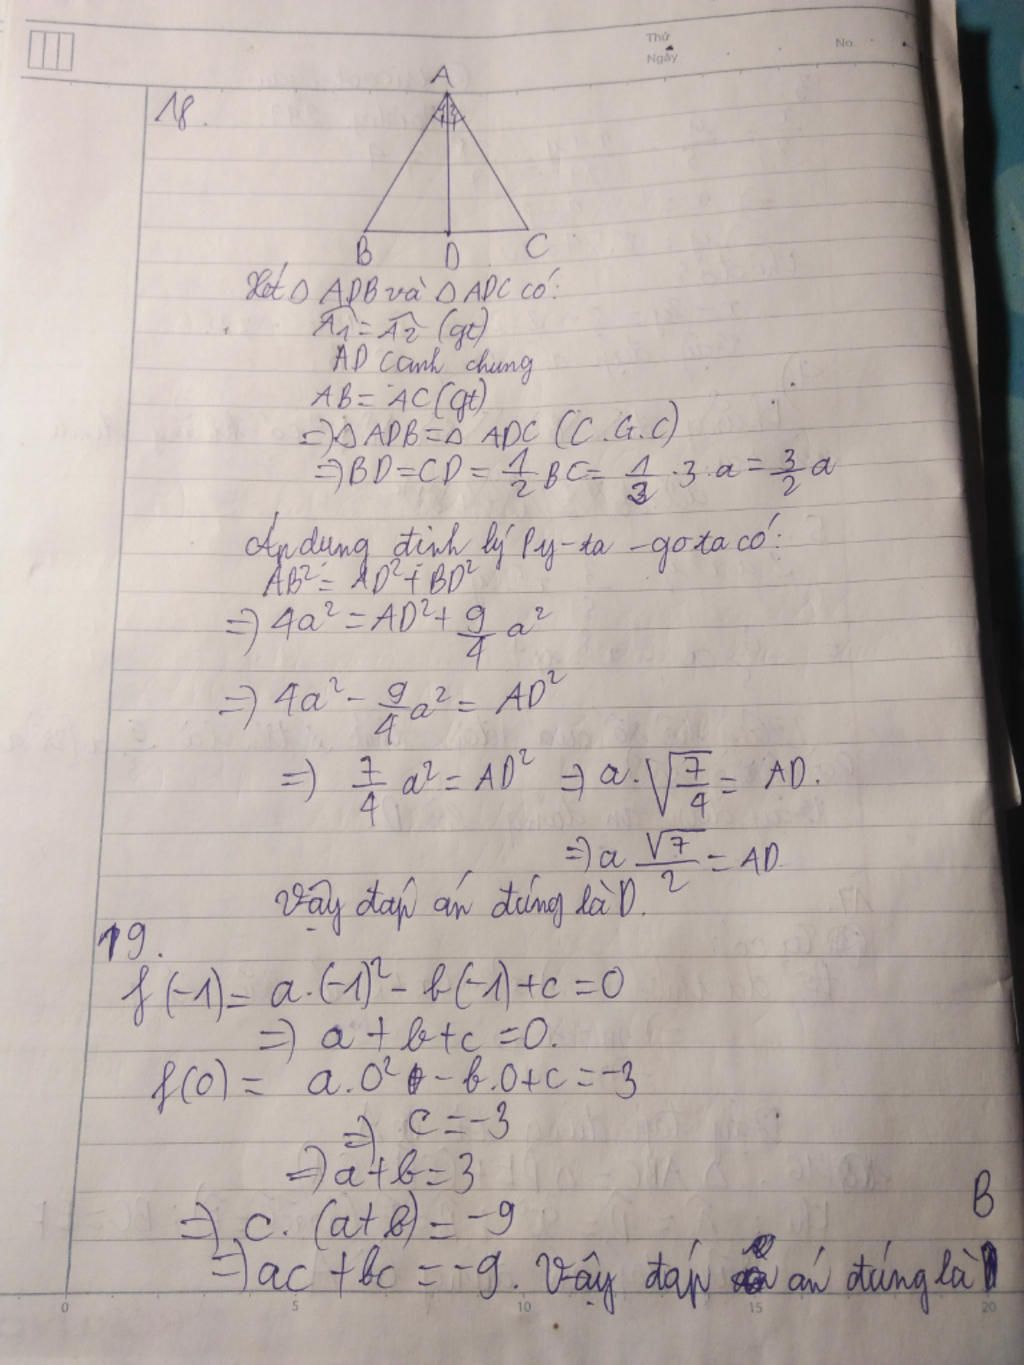 Thứ
Ngày
No.
18.
A
B D C
Xét △ ADB và △ ADC có:
A1 = A2 (gt)
AD cạnh chung
AB = AC (gt)
=> △ ADB = △ ADC (C.G.C)
=> BD = CD = 1/2 BC = 1/2 · 3 · a = 3/2 a
Áp dụng định lý Py-ta-gota có:
AB² = AD² + BD²
=> 4a² = AD² + 9/4 a²
=> 4a² - 9/4 a² = AD²
=> 7/4 a² = AD² => a · √(7/4) = AD.
=> a √7/2 = AD
Vậy đáp án đúng là D.
19.
f(-1) = a.(-1)² - b(-1) + c = 0
=> a + b + c = 0.
f(0) = a.0² - b.0 + c = -3
=> c = -3
=> a + b = 3
=> c. (a+b) = -9
=> ac + bc = -9. Vậy đáp án đúng là B
0 5 10 15 20